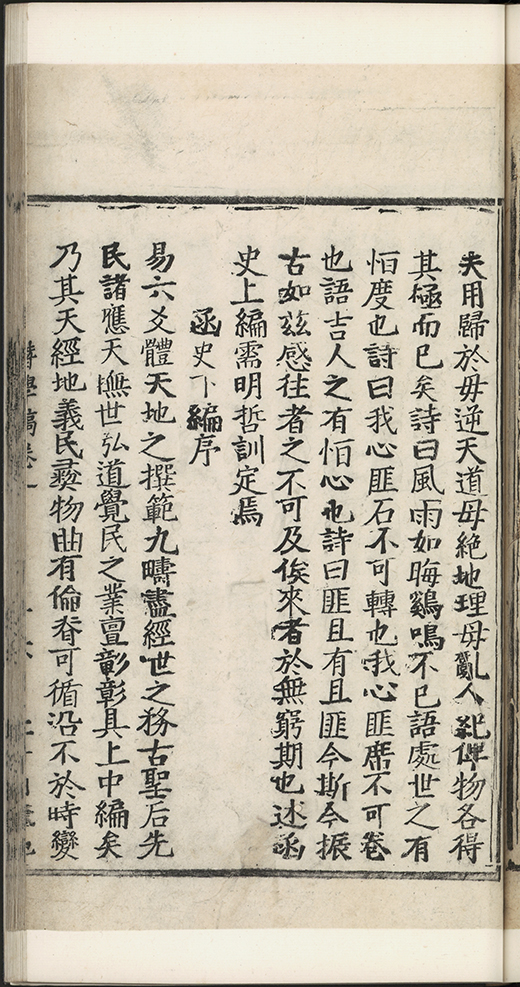 夫用歸於毋逆天道毋絕地理毋亂人紀俾物各得
其極而已矣詩曰風雨如晦鷄鳴不已語處世之有
恒度也詩曰我心匪石不可轉也我心匪席不可卷
也語吉人之有恒心也詩曰匪且有且匪今斯今振
古如玆感往者之不可及俟來者於無窮期也述函
史上編需明哲訓定焉
函史下編序
易六爻體天地之撰範九疇盡經世之務古聖后先
民諸應天撫世弘道覺民之業亶彰彰具上中編矣
乃其天經地義民彞物曲有倫脊可循沿不於時變